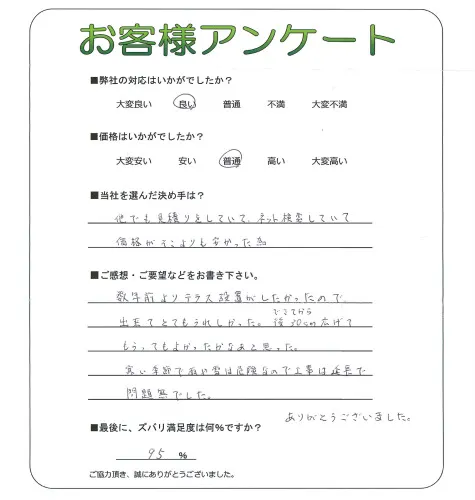 お客様アンケート
■弊社の対応はいかがでしたか？
大変良い 良い 普通 不満 大変不満
■価格はいかがでしたか？
大変安い 安い 普通 高い 大変高い
■当社を選んだ決め手は？
他でも見積りをしていて、ネット検索していて
価格がそこよりも安かった為
■ご感想・ご要望などをお書き下さい。
数年前よりテラス設置がしたかったので、
出来てとてもうれしかった。できてから後30cm広げて
もらってもよかったかなあと思った。
寒い季節で雨や雪は危険なので工事は延長で
問題無でした。
ありがとうございました。
■最後に、ズバリ満足度は何％ですか？
95 ％
ご協力頂き、誠にありがとうございました。